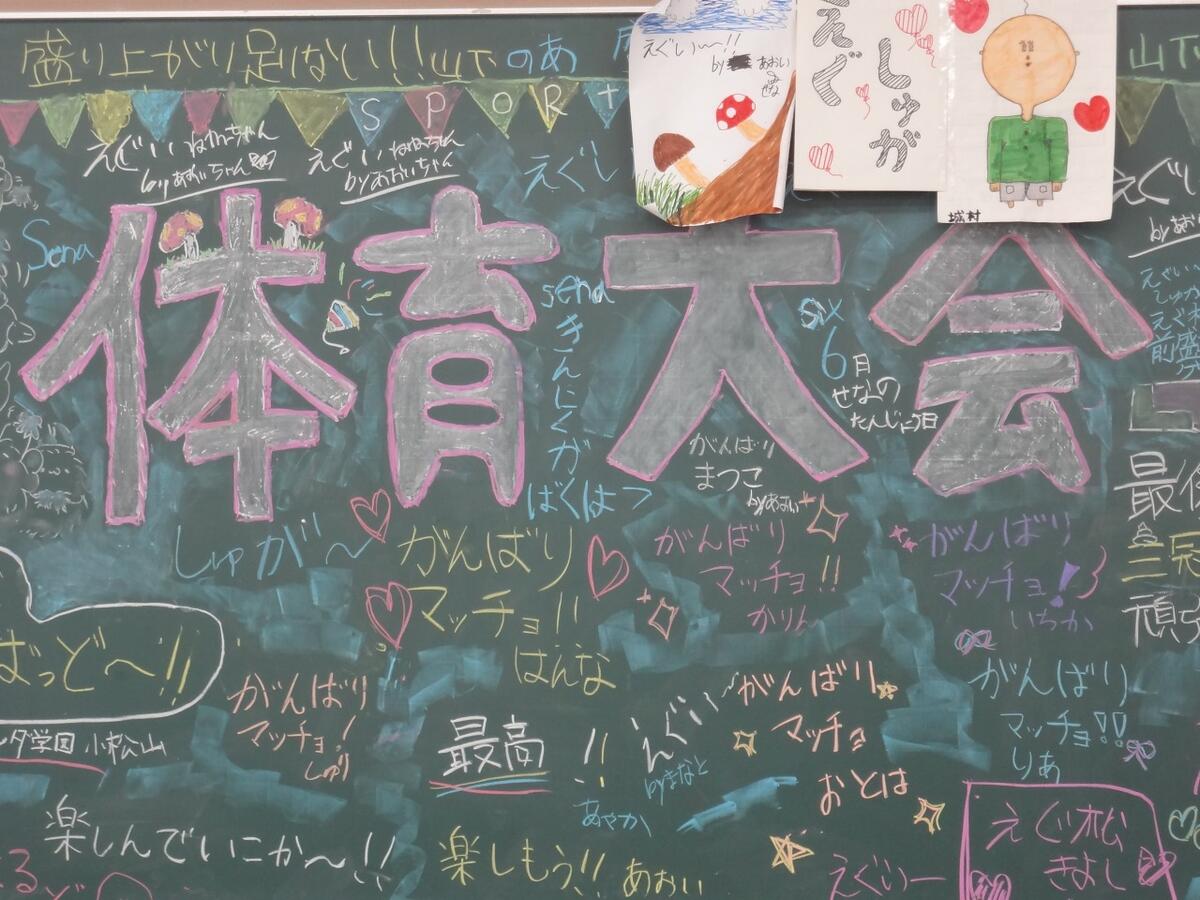 盛り上がり足りない!!山下のあ
山下
SPORT
えぐい~!!
by
あおい
&
せな
えぐ
しゅが
城村
えぐい ねねちゃん
by あおいちゃん
えぐい ねねちゃん
by あおいちゃん
えぐし
えぐい
by あお
Sena
体育大会
にこ
send
きんにくが
ばくはつ
6月
せなの
たんじょう日
がんばり
まつこ
by あおい
しゅが~
がんばり
マッチョ!!
はえな
がんばり
マッチョ!!
かりん
がんばり
マッチョ!
いちか
最
三冠
頑
ばっど~!!
ダ学園 小松山
がんばり
マッチョ!
しゅり
最高!!
あやか
えぐい~
by まなと
がんばり
マッチョ
おとは
がんばり
マッチョ!!
りあ
楽しんでいこか~!!
楽しもう!! あおい
えぐいー
えぐ松
きよし